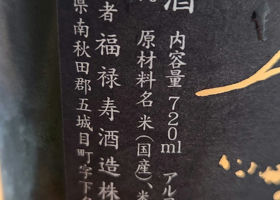 酒
内容量 720ml アル
原材料名 米(国産)、米
者 福禄寿酒造株
県南秋田郡五城目町字下